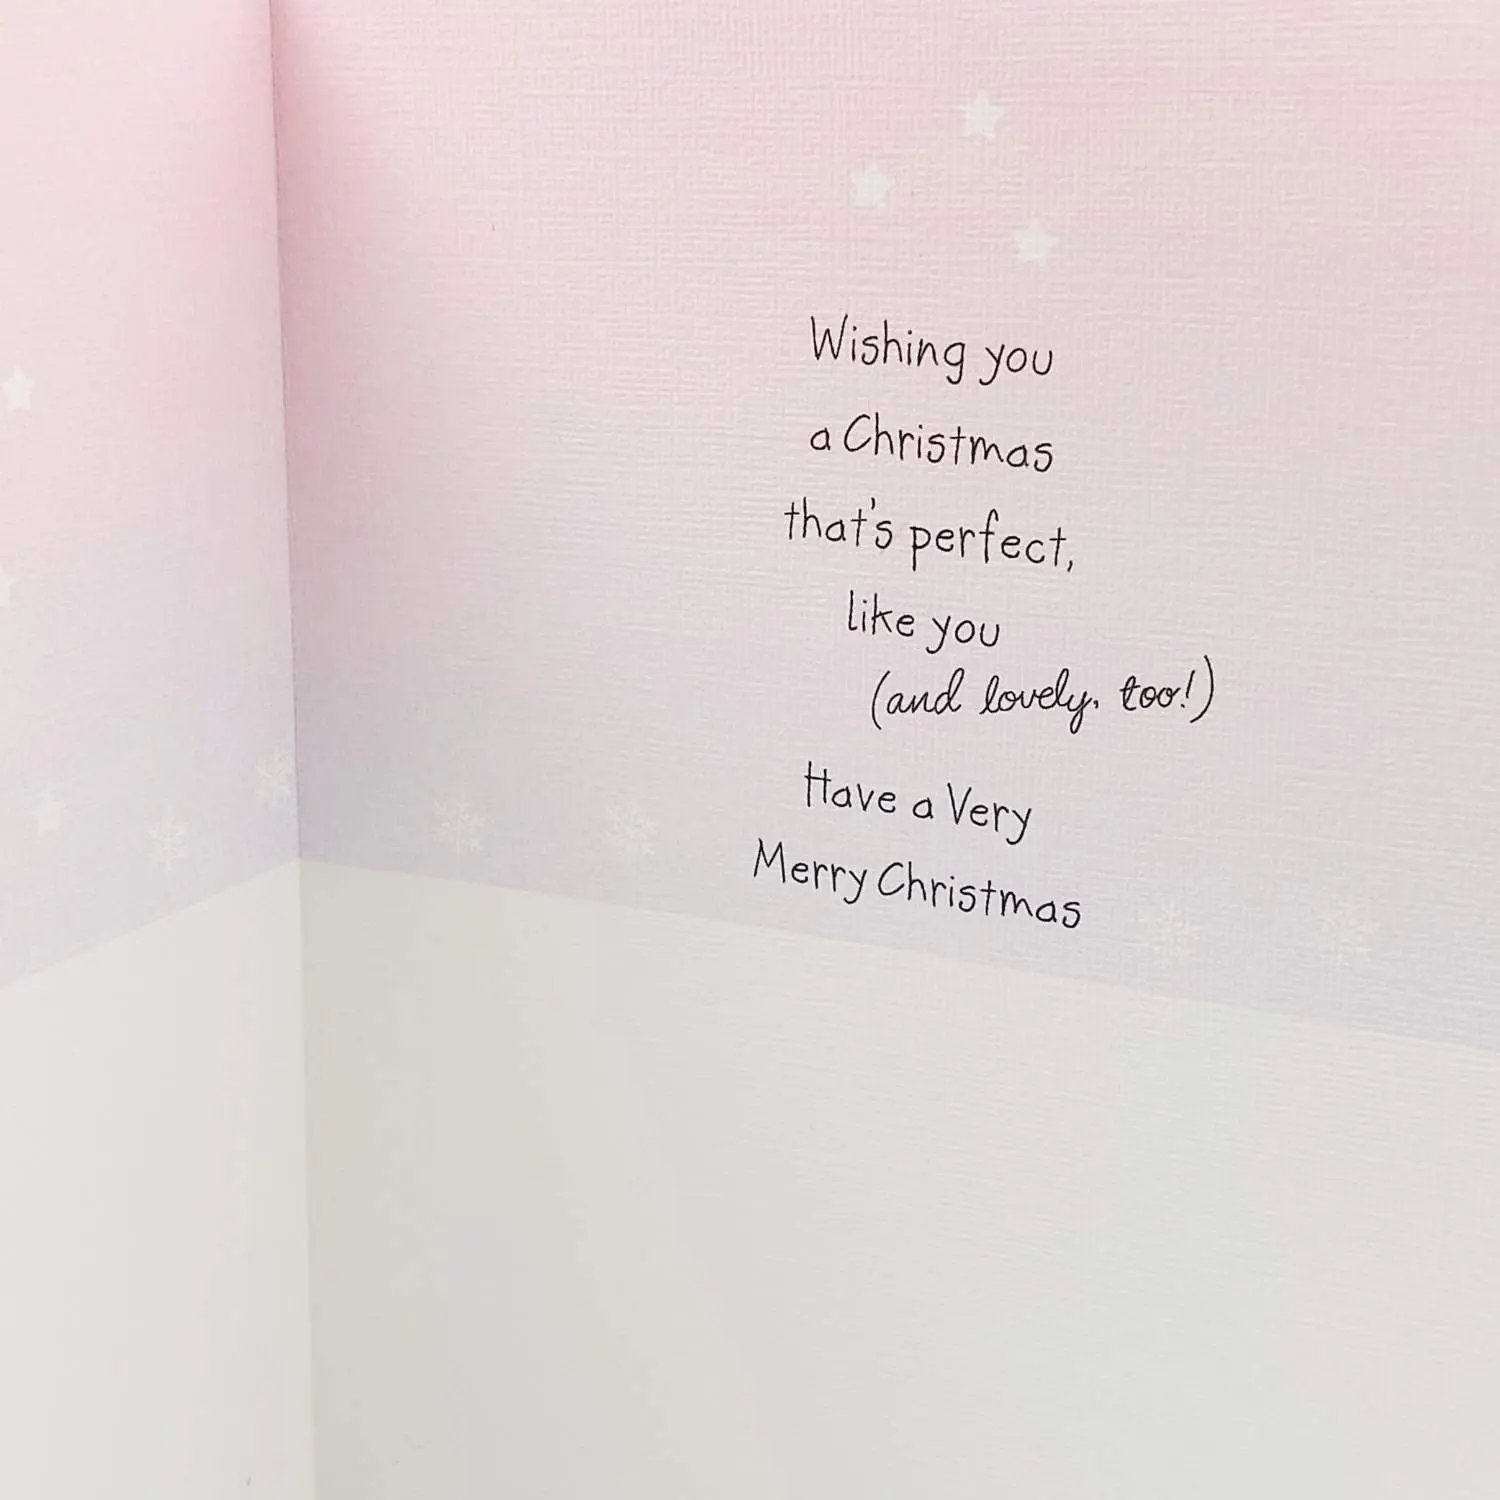 Wishing you
a Christmas
that's perfect,
like you
(and lovely, too!)
Have a Very
Merry Christmas